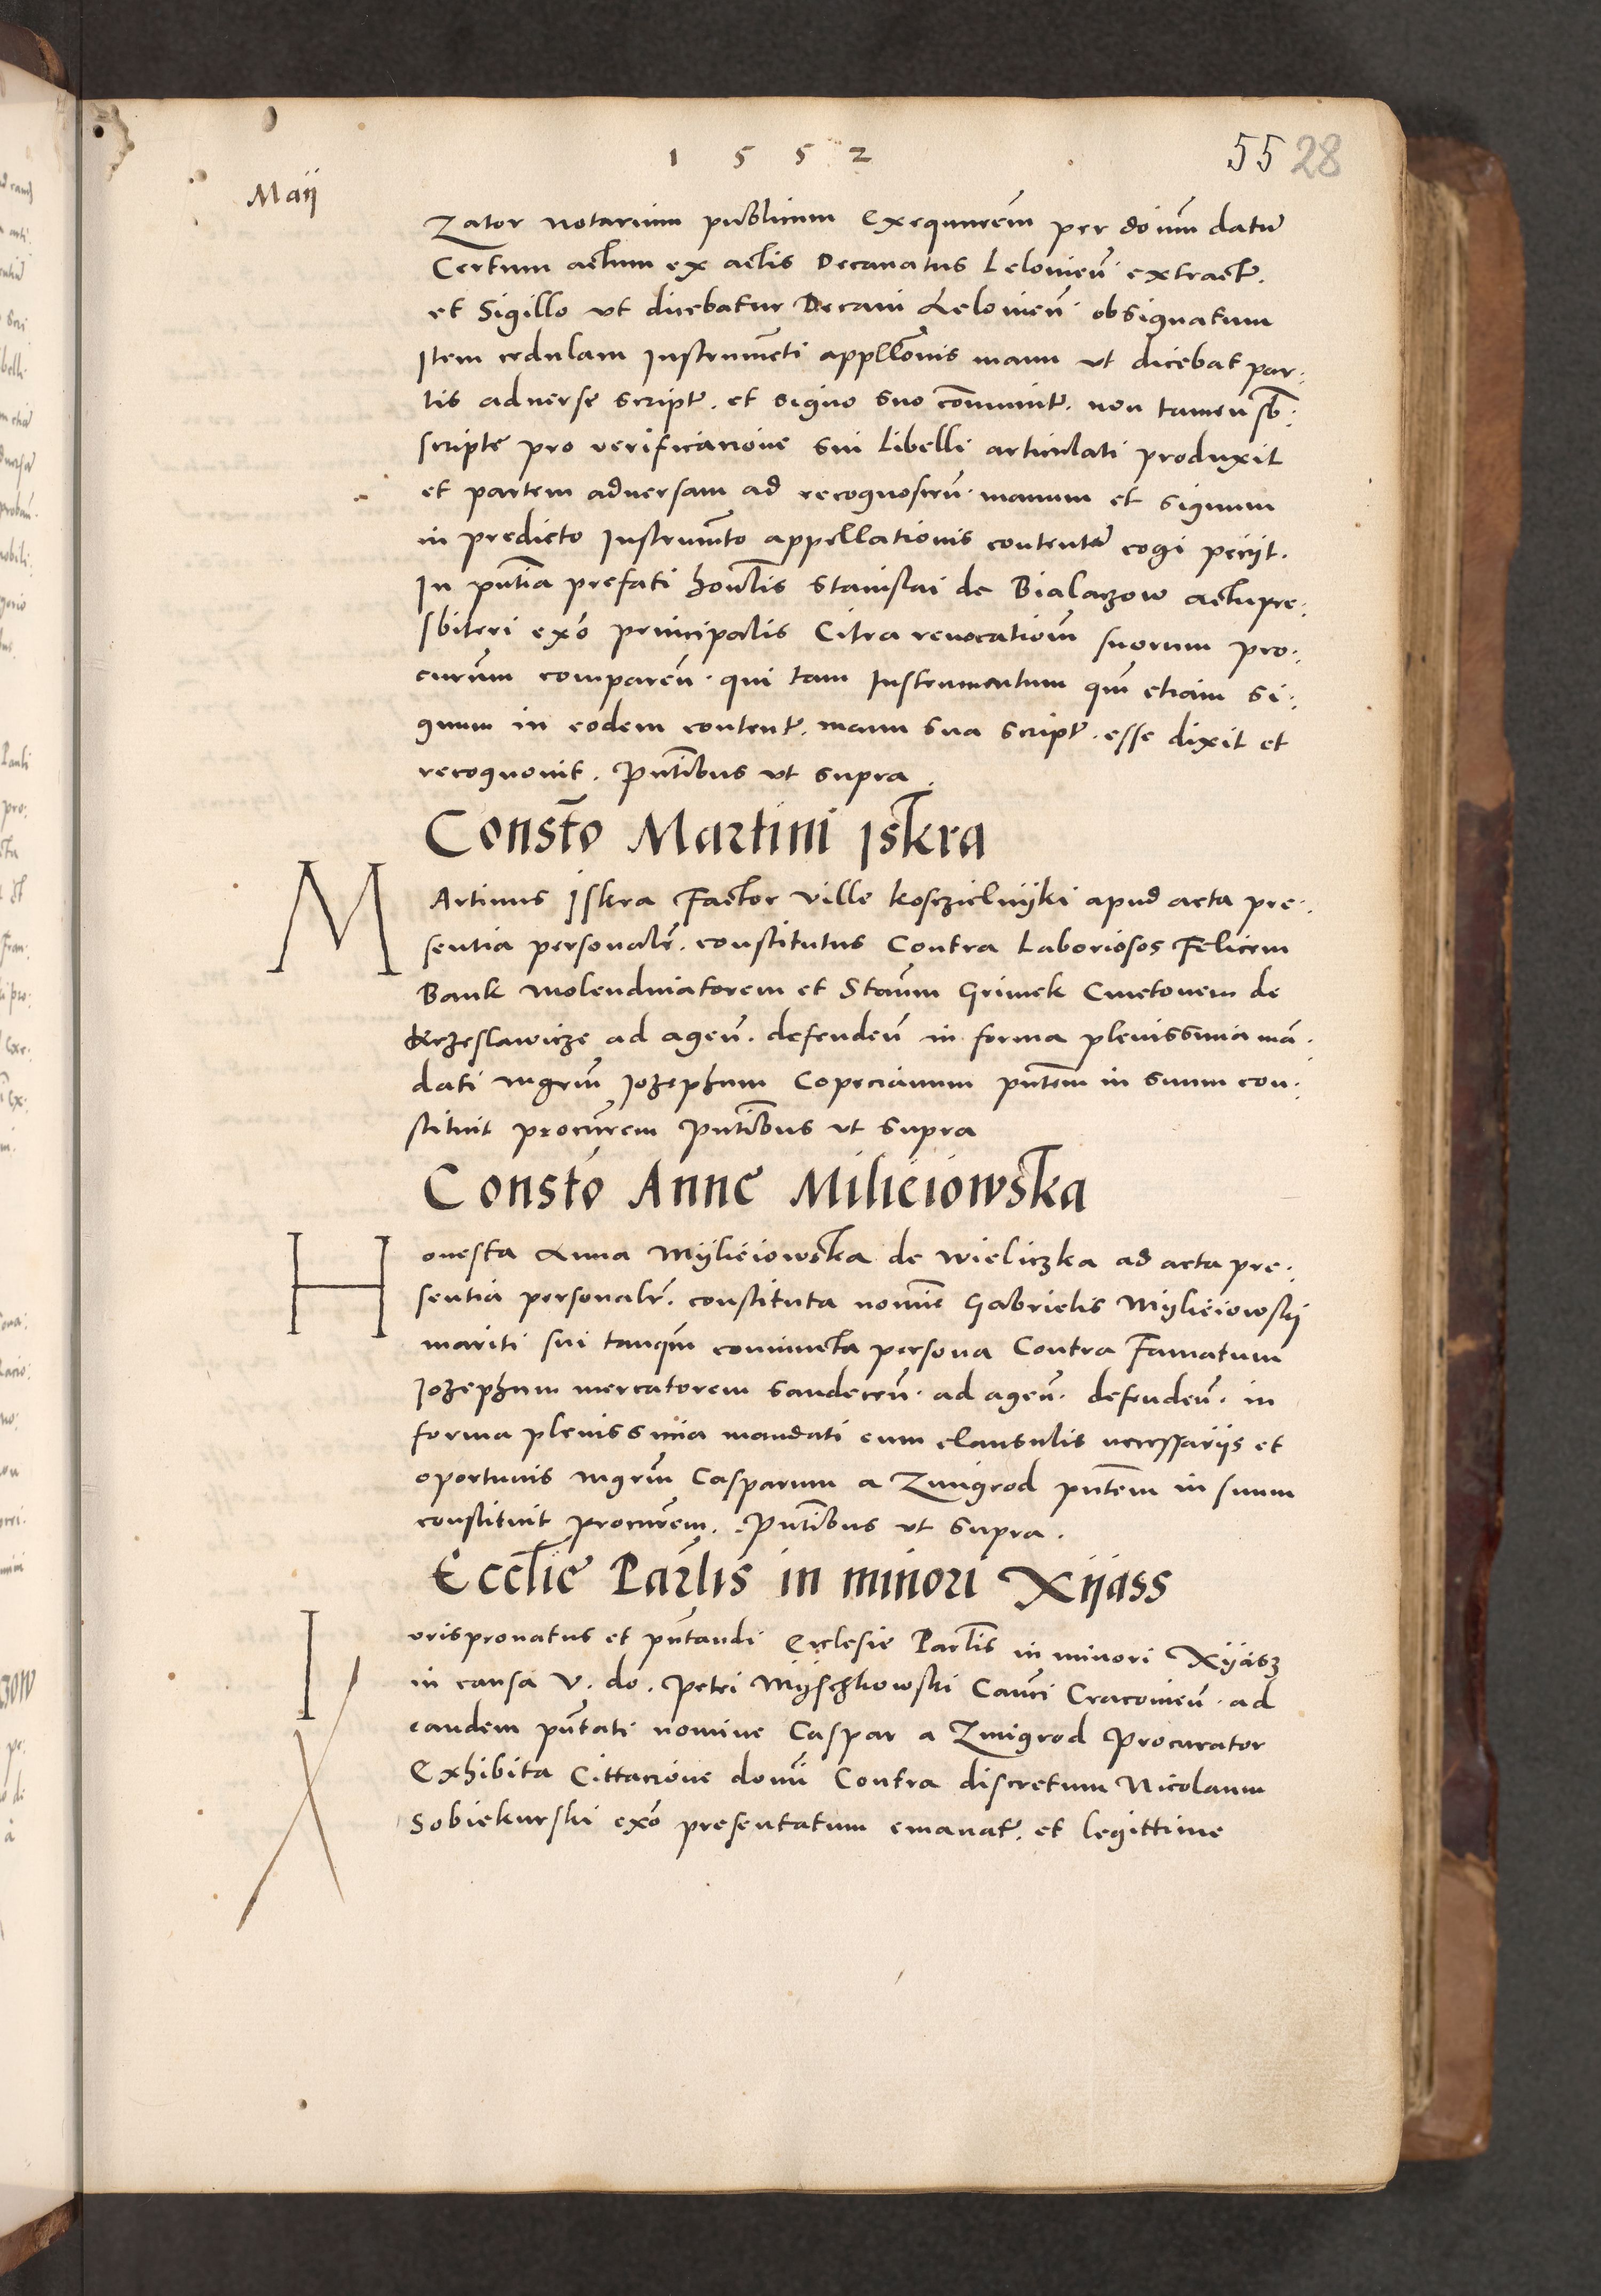 1 5 5 2
55 28
Maij
Zator notarium publicum Exequutem per doium datu
Certum actum ex actis Decanatus Leloviens extract.
et Sigillo ut dicebatur Decani Leloviens obsignatum
Item cedulam Instrumeti appllonis manu ut dicebat par:
tis adverse script. et signo suo communit. non tamen sb:
scripte pro verificacione sui libelli articulati produxit
et partem adversam ad recognoscen. manum et signum
in predicto Instrumto appellationis content cogi peciit.
In pntia prefati honlis Stanislai de Bialaczow actupre:
sbiteri exo principalis Citra revocationm suorum pro:
curum comparen. qui tam Instrumentum qm etiam si:
gnum in eodem content. manu sua script. esse dixit et
recognovit. Pntibus ut supra.
Consto Martini Iskra
MArtinus Iskra Factor ville kosczielnijki apud acta pre:
sentia personalr. constitutus Contra Laboriosos Felicem
Bank molendinatorem et Staum Grimek Cmetonem de
Krzeslawicze ad agen. defenden in forma plenissima man:
dati mgrm Iozephum Copecianum pntem in suum con:
stituit procurem Pntibus ut supra
Consto Anne Miliciowska
Honesta Anna Mijliciowska de wieliczka ad acta pre:
sentia personalr. constituta nomine Gabrielis Mijliciowskij
mariti sui tanqm coniuncta persona Contra Famatum
Iozephum mercatorem sandecen. ad agen. defenden. in
forma plenissima mandati cum clausulis necessarijs et
oportunis mgrm Casparum a Zmigrod pntem in suum
constituit procurem. Pntibus ut supra.
Ecclie Parlis in minori Xijass
Iurispronatus et pntandi Ecclesie Parlis in minori Xijasz
in causa V. do. Petri Mijschkowski Canci Cracovien. ad
eandem pntati nomine Caspar a Zmigrod Procurator
Exhibita Cittacione domi Contra discretum Nicolaum
Sobiekurski exo presentatum emanat. et legittime